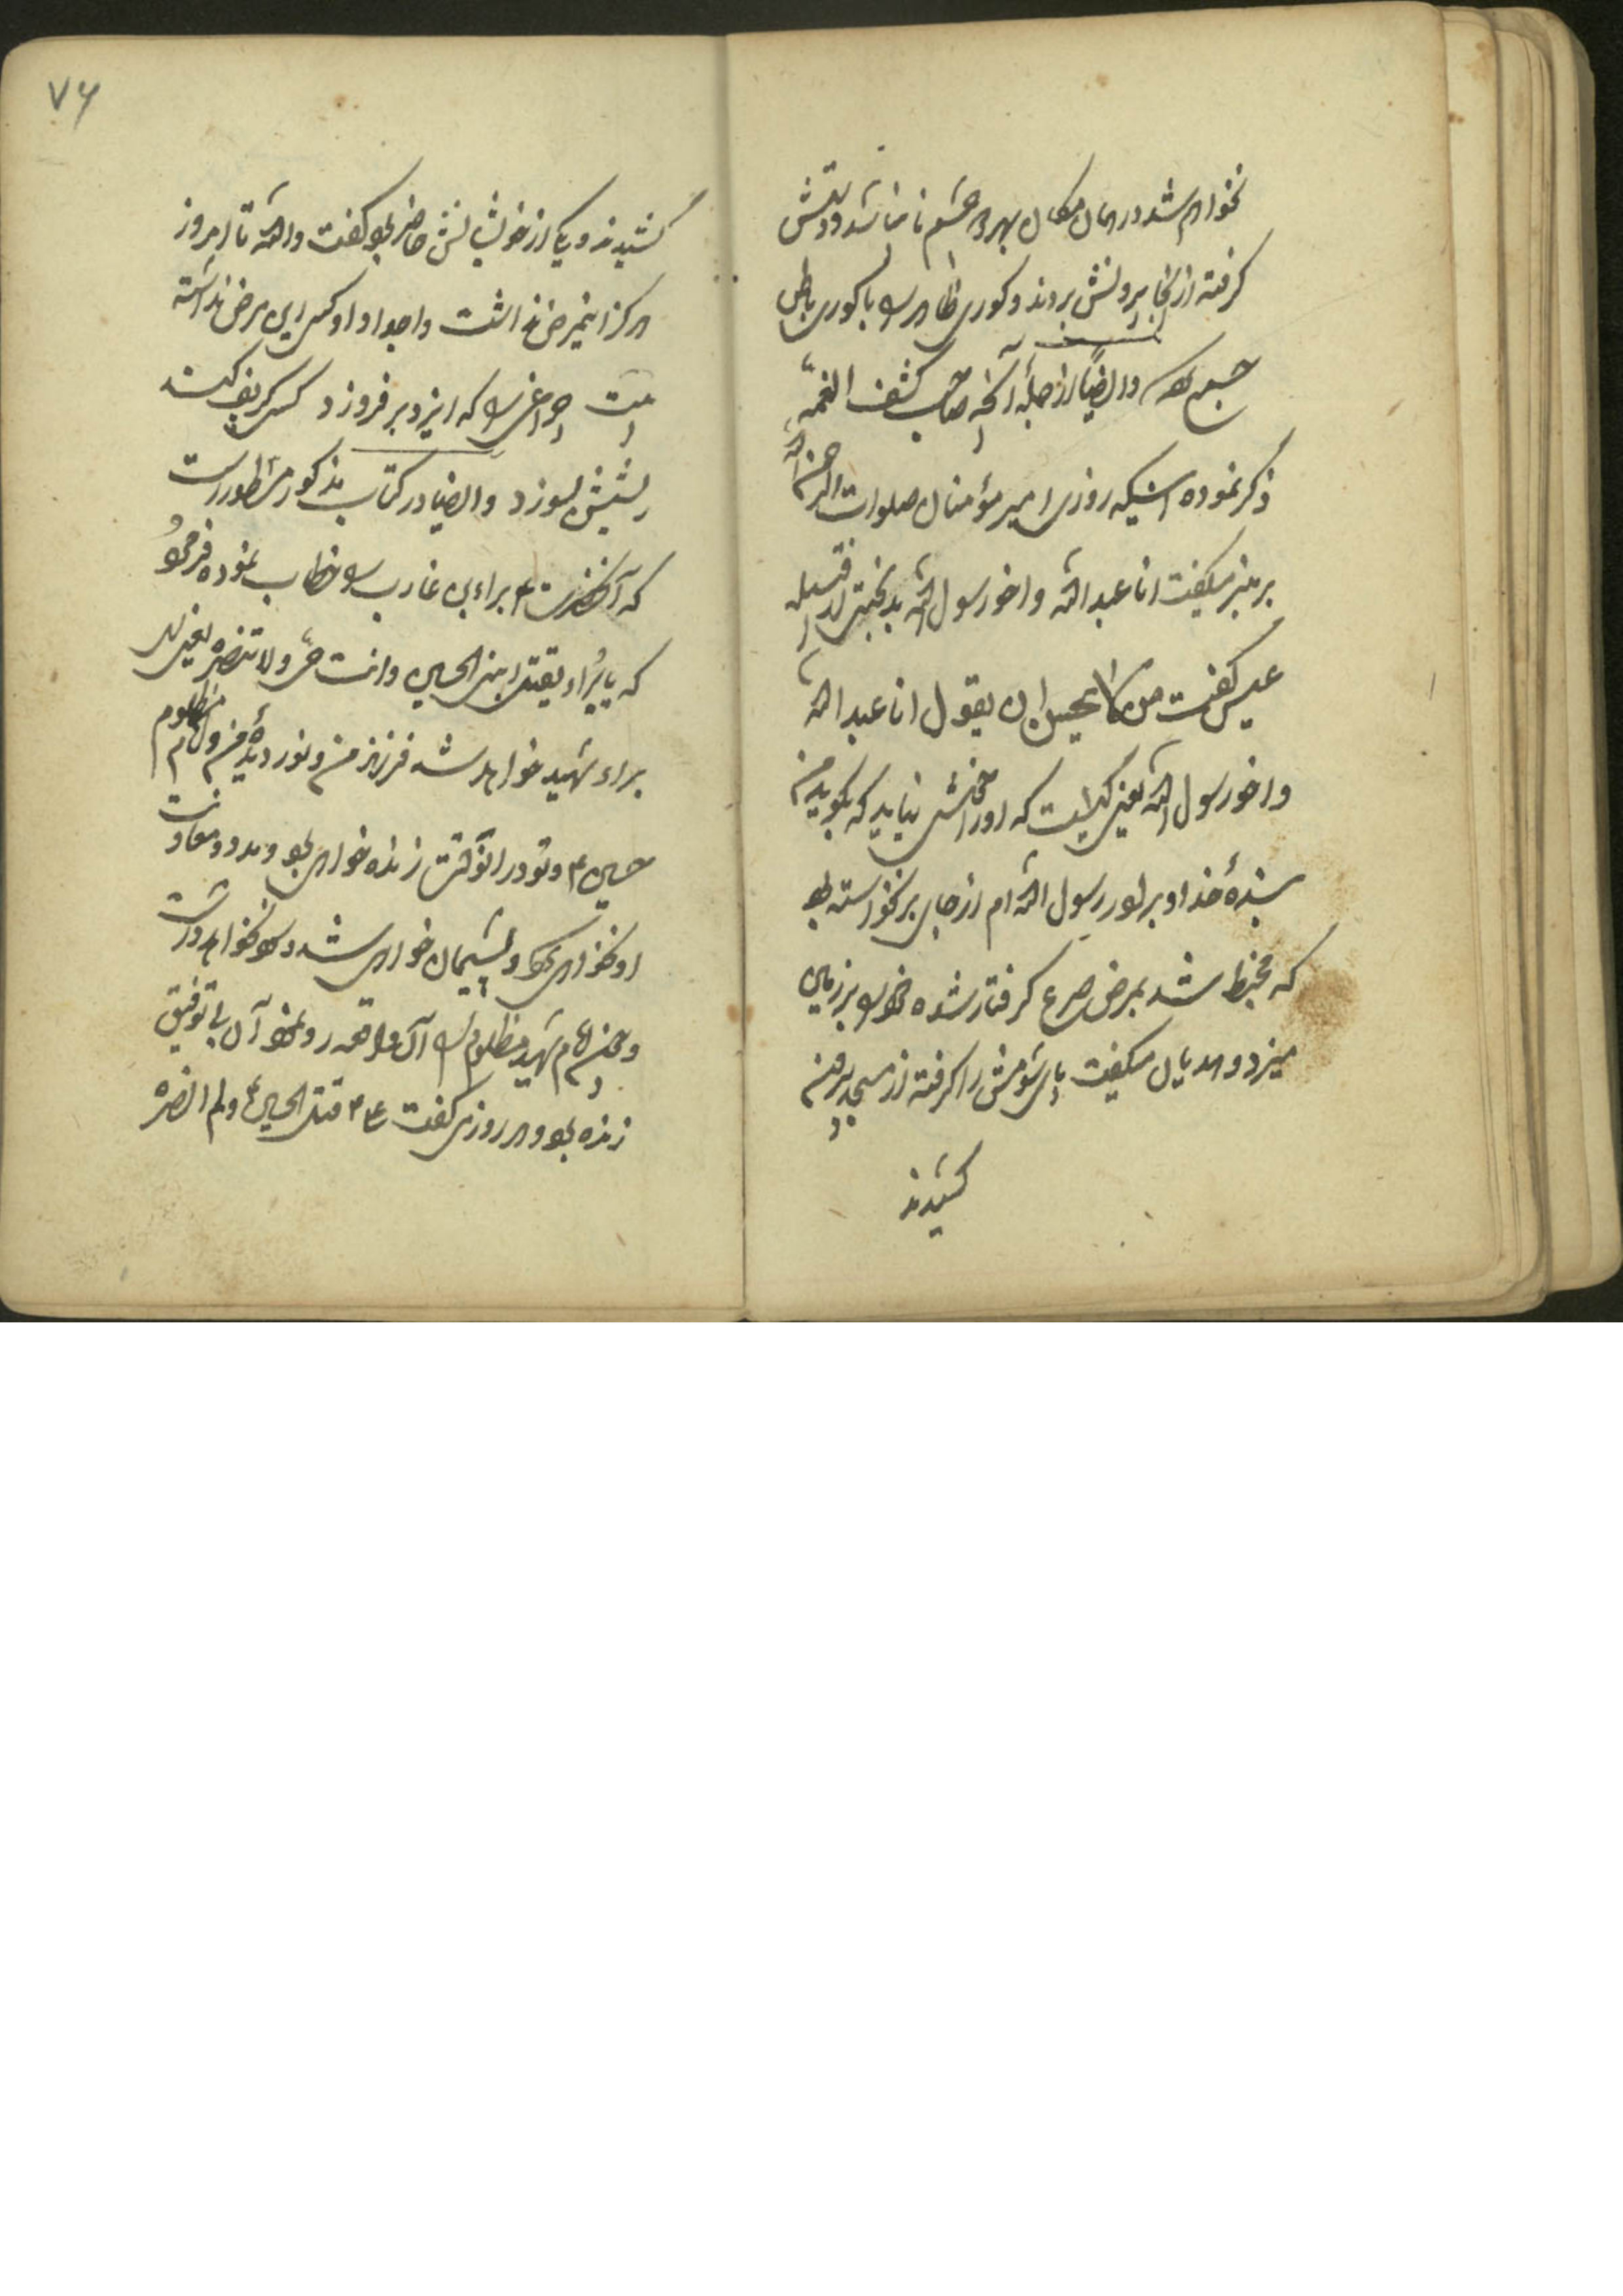 نخواهم شد در همان مکان بهر دو چشم نابینا شد و دستش
گرفته از آنجا بیرونش بردند و کوری ظاهر را با کوری باطن
جمع کرد و ایضاً از جمله آنچه صاحب کشف الغمّه
ذکر نموده اینکه روزی امیر مؤمنان صلوات الرحمن
بر منبر میگفت انا عبد الله و اخو رسول الله بدبختی از قبیله
عبس گفت من لا یحسن ان یقول انا عبد الله
و اخو رسول الله یعنی کیست که او را خوش نیاید که بگوید من
بندهٔ خدا و برادر رسول الله ام از جای برنخواسته بود
که مخبط شد بمرض صرع گرفتار شده خود را بر زمین
میزد و هدیان میگفت پای شومش را گرفته از مسجد بیرون
کشیدند
۷۶
کشیدند و یکی از خویشانش حاضر بود گفت والله تا امروز
هرگز اینمرض نداشت و اجداد او کسی این مرض نداشته
بیت چراغی را که ایزد بر فروزد کسی کر پف کند
ریشش بسوزد و ایضا در کتاب مذکور مسطور است
که آنحضرت ع براء بن عازب را خطاب نموده فرمود
که یا بُراء یقتل ابنی الحسین و انت حیّ و لا تنصره یعنی ای
براء شهید خواهد شد فرزند من و نور دیدهٔ من امام مظلوم
حسین ع و تو در انوقت زنده خواهی بود و مدد و معاونت
او نخواهی کرد و پشیمان خواهی شد و سود نخواهد داشت
و چون امام شهید مظلوم را آن واقعه رو نمود آن بی توفیق
زنده بود و هر روزی گفت ع ع قتل الحسین ع و لم انصره